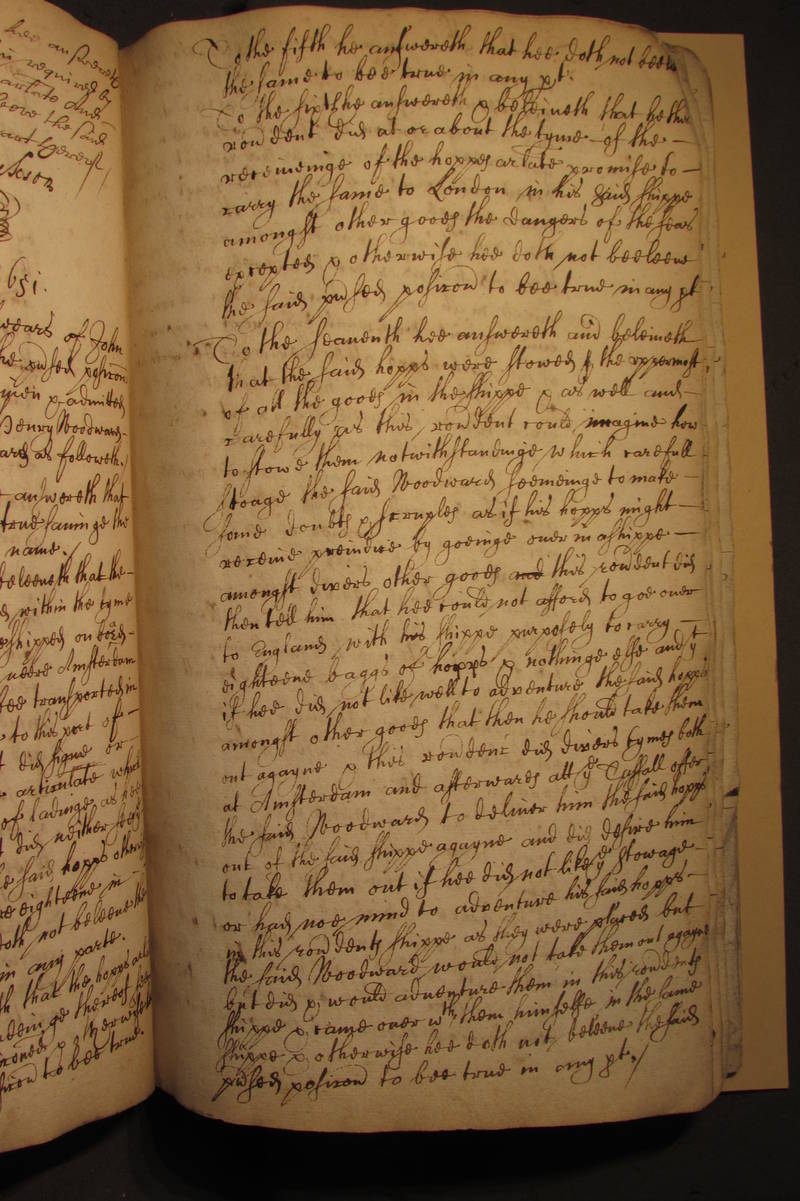 hee answereth
required by
artate and
above the said
651.
yeares of John
the pnsed posicon
men & admitted
Henry Woodward
are as followeth./
answereth that
true saving the
name./
beleeveth that the
within the tyme
shipped on board
neere Amsterdam
bee transported in
to this port of
did signe
articulate which
of ladinge as hee
did neither
the said hopps other
eighteene in
doth not beleeve the
in any parte.
that the hopps
ladeinge thereof
& otherwise
posicon to bee true.
To the fifth he answereth that hee doth not beeleeve
the same to bee true in any pt.
To the sixth he answereth & beleiveth that hee this
rondent did at or about the tyme of the
receiveinge of the hoppes artate promise to
carry the same to London in his said shippe
amongst other goods the dangers of the seas
excepted & otherwise hee doth not beeleeve
the said pnsed posicon to bee true in any pt
To the seaventh hee answereth and beleiveth
that the said hopps were stowed the uppermost
of all the goods in the shippe & as well and
carefully as this rondent could imagine how
to stowe them notwithstandinge which carefull
stoage the said Woodward seemeinge to make
some doubts & scruples as if his hopps might
receive preiudice by goeinge over in a shippe
amongst divers other goods and this rondent did
then tell him that hee could not afford to goe over
to England with his shippe purposely to carry
eighteene baggs of hopps & nothinge else and yt
if hee did not like well to adventure the said hopps
amongst other goods that then he should take them
out agayne & this rondent did divers tymes both
at Amsterdam and afterwards att ye Taffall offer
the said Woodward to deliver him the said hopps
out of the said shippe agayne and did desire him
to take them out if hee did not like ye stowage
or had noe mind to adventure his said hopps
in this rondents shippe as they were placed but
the said Woodward would not take them out agayne
but did & would adventure them in this rondents
shippe & came over wth them himselfe in the same
shippe & otherwise hee doth not beleeve the said
pnsed posicon to bee true in any pt./